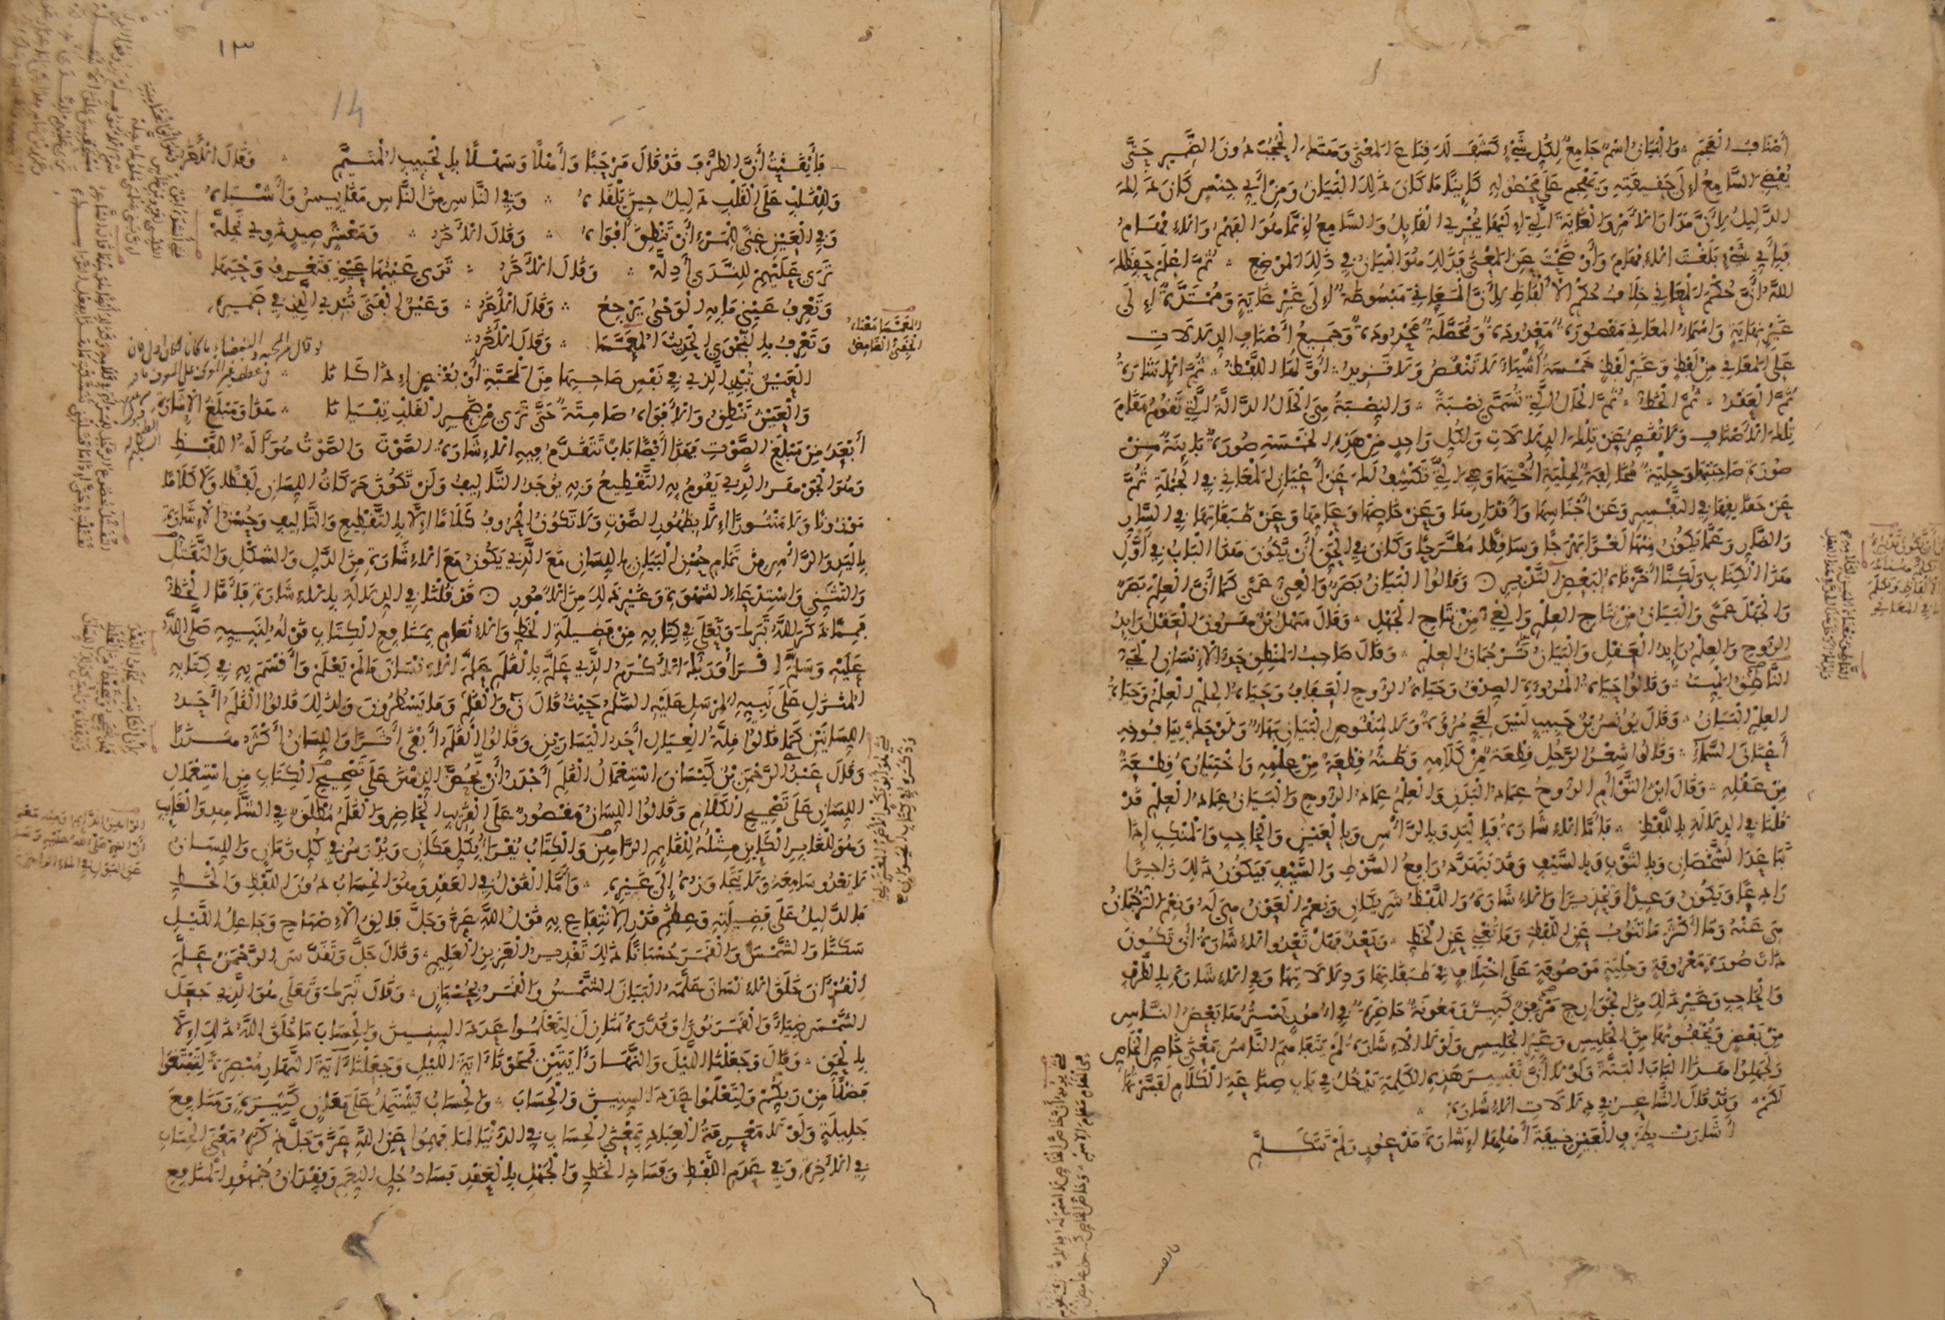 أصناف العجم والبيان اسم جامع لكل شيء كشف لك قناع المعنى وهتك الحجب دون الضمير حتى
يفضي السامع إلى حقيقته ويهجم على محصوله كائنا ما كان ذلك البيان ومن أي جنس كان ذلك
الدليل لأن مدار الأمر والغاية التي إليها يجري القايل والسامع إنما هو الفهم والإفهام
فبأي شيء بلغت الإفهام وأوضحت عن المعنى فذلك هو البيان في ذلك الموضع ثم اعلم حفظك
الله أن حكم المعاني خلاف حكم الألفاظ لأن المعاني مبسوطة إلى غير غاية وممتدة إلى
غير نهاية وأسماء المعاني مقصورة معدودة ومحصلة محدودة وجميع أصناف الدلالات
على المعاني من لفظ وغير لفظ خمسة أشياء لا تنقص ولا تزيد أولها اللفظ ثم الإشارة
ثم العقد ثم الخط ثم الحال التي تسمى نصبة والنصبة هي الحال الدالة التي تقوم مقام
تلك الأصناف ولا تقصر عن تلك الدلالات ولكل واحد من هذه الخمسة صورة باينة من
صورة صاحبتها وحلية مخالفة لحلية أختها وهي التي تكشف لك عن أعيان المعاني في الجملة ثم
عن حقايقها في التفسير وعن أجناسها وأقدارها وعن خاصها وعامها وعن طبقاتها في السار
والضار وعما يكون منها لغوا بهرجا وساقطا مطرحا وكان في الحق أن يكون هذا الباب في أول
هذا الكتاب ولكنا أخرناه لبعض التدبير وقالوا البيان بصر والعي عمى كما أن العلم بصر
والجهل عمى والبيان من نتاج العلم والعي من نتاج الجهل وقال سهل بن هرون العقل رايد
الروح والعلم رايد العقل والبيان ترجمان العلم وقال صاحب المنطق حد الإنسان الحي
الناطق الميت وقالوا حياة المروءة الصدق وحياة الروح العفاف وحياة الحلم العلم وحياة
العلم البيان وقال يونس بن حبيب ليس لعي مروءة ولا لمنقوص البيان بهاء ولو حك بيافوخه
أعنان السماء وقالوا شعر الرجل قطعة من كلامه وظنه قطعة من علمه واختياره قطعة
من عقله وقال ابن التوأم الروح عماد البدن والعلم عماد الروح والبيان عماد العلم قد
قلنا في الدلالة باللفظ فأما الإشارة فباليد وبالرأس وبالعين والحاجب والمنكب إذا
تباعد الشخصان وبالثوب وبالسيف وقد يتهدد رافع السوط والسيف فيكون ذلك زاجرا
رادعا ويكون وعيدا وتحذيرا والإشارة واللفظ شريكان ونعم العون هي له ونعم الترجمان
هي عنه وما أكثر ما تنوب عن اللفظ وما تغني عن الخط وبعد فهل تعدو الإشارة أن تكون
ذات صورة معروفة وحلية موصوفة على اختلاف في طبقاتها ودلالاتها وفي الإشارة بالطرف
والحاجب وغير ذلك من الجوارح مرفق كبير ومعونة حاضرة في أمور يسترها بعض الناس
من بعض ويخفونها من الجليس وغير الجليس ولولا الإشارة لم يتفاهم الناس معنى خاص الخاص
ولجهلوا هذا الباب البتة ولولا أن تفسير هذه الكلمة يدخل في باب صناعة الكلام لفسرتها
لكم وقد قال الشاعر في دلالات الإشارة
أشارت بطرف العين خيفة أهلها إشارة مذعور ولم تتكلم
١٣
14
فأيقنت أن الطرف قد قال مرحبا وأهلا وسهلا بالحبيب المتيم وقال الآخر
وللقلب على القلب دليل حين يلقاه وفي الناس من الناس مقاييس وأشباه
وفي العين غنى للمرء أن تنطق أفواه وقال الآخر ومعشر صيد ذوي تجلة
ترى عليهم للندى أدلة وقال الآخر ترى عينها عيني فتعرف وحيها
وتعرف عيني ما به الوحي يرجع وقال الآخر وعين الفتى تبدي الذي في ضميره
وتعرف بالنجوى الحديث المعمسا وقال الآخر
العين تبدي الذي في نفس صاحبها من المحبة أو بغض إذا كانا
والعين تنطق والأفواه صامتة حتى ترى من ضمير القلب تبيانا هذا ومبلغ الإشارة
أبعد من مبلغ الصوت فهذا أيضا باب تتقدم فيه الإشارة الصوت والصوت هو آلة اللفظ
وهو الجوهر الذي يقوم به التقطيع وبه يوجد التأليف ولن تكون حركات اللسان لفظا ولا كلاما
موزونا ولا منثورا إلا بظهور الصوت ولا تكون الحروف كلاما إلا بالتقطيع والتأليف وحسن الإشارة
باليد والرأس من تمام حسن البيان باللسان مع الذي يكون مع الإشارة من الدل والشكل والتقتل
والتثني واستدعاء الشهوة وغير ذلك من الأمور قد قلنا في الدلالة بالإشارة فأما الخط
فمما ذكر الله تبارك وتعالى في كتابه من فضيلة الخط والإنعام بمنافع الكتاب قوله لنبيه صلى الله
عليه وسلم اقرأ وربك الأكرم الذي علم بالقلم علم الإنسان ما لم يعلم وأقسم به في كتابه
المنزل على نبيه المرسل عليه السلم حيث قال ن والقلم وما يسطرون ولذلك قالوا القلم أحد
اللسانين كما قالوا قلة العيال أحد اليسارين وقالوا القلم أبقى أثرا واللسان أكثر هذرا
وقال عبد الرحمن بن كيسان استعمال القلم أجدر أن يحض الذهن على تصحيح الكتاب من استعمال
اللسان على تصحيح الكلام وقالوا اللسان مقصور على القريب الحاضر والقلم مطلق في الشاهد والغايب
وهو للغابر الكاين مثله للقايم الراهن والكتاب يقرأ بكل مكان ويدرس في كل زمان واللسان
لا يعدو سامعه ولا يتجاوزه إلى غيره وأما القول في العقد وهو الحساب دون اللفظ والخط
فالدليل على فضيلته وعظم قدر الانتفاع به قول الله عز وجل فالق الإصباح وجاعل الليل
سكنا والشمس والقمر حسبانا ذلك تقدير العزيز العليم وقال جل وتقدس الرحمن علم
القرآن خلق الإنسان علمه البيان الشمس والقمر بحسبان وقال تبارك وتعالى هو الذي جعل
الشمس ضياء والقمر نورا وقدره منازل لتعلموا عدد السنين والحساب ما خلق الله ذلك إلا
بالحق وقال وجعلنا الليل والنهار آيتين فمحونا آية الليل وجعلنا آية النهار مبصرة لتبتغوا
فضلا من ربكم ولتعلموا عدد السنين والحساب والحساب يشتمل على معان كثيرة ومنافع
جليلة ولولا معرفة العباد بمعنى الحساب في الدنيا لما فهموا عن الله عز وجل ذكره معنى الحساب
في الآخرة وفي عدم اللفظ وفساد الخط والجهل بالعقد فساد جل النعم وفقدان جمهور المنافع